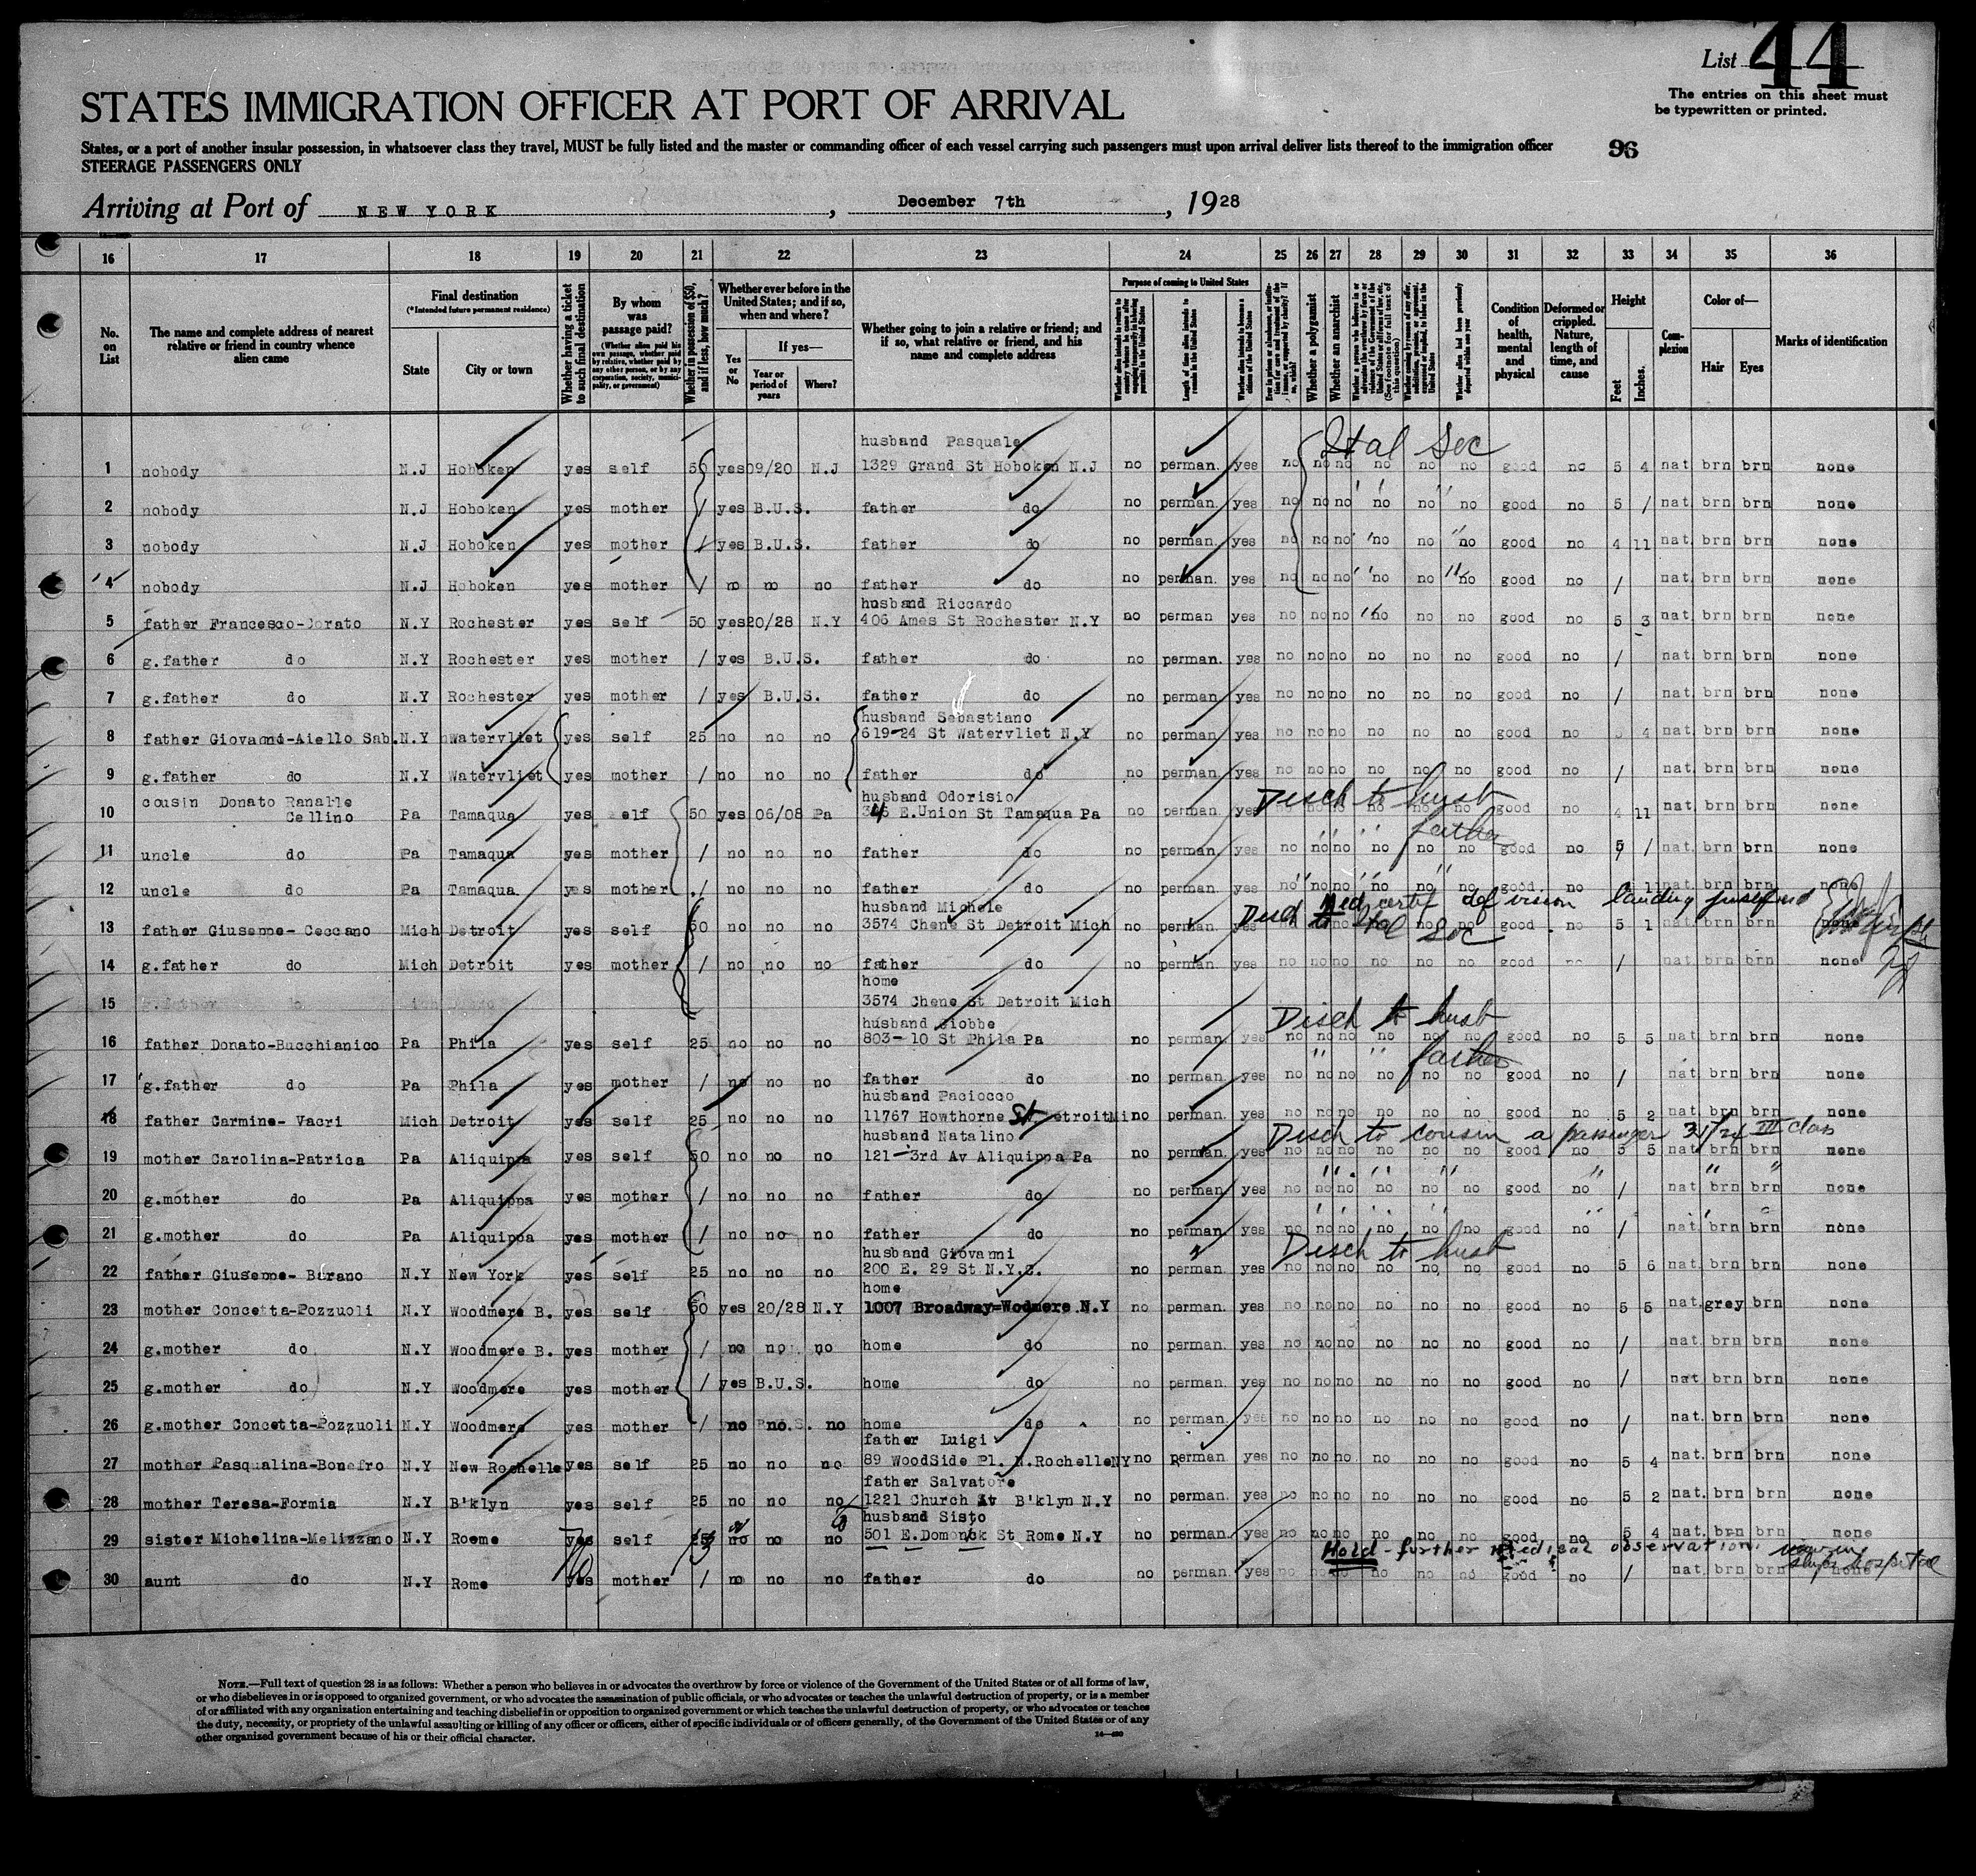 List 44
The entries on this sheet must
be typewritten or printed.
STATES IMMIGRATION OFFICER AT PORT OF ARRIVAL
States, or a port of another insular possession, in whatsoever class they travel, MUST be fully listed and the master or commanding officer of each vessel carrying such passengers must upon arrival deliver lists thereof to the immigration officer
STEERAGE PASSENGERS ONLY
96
Arriving at Port of NEW YORK, December 7th, 1928
16 17 18 19 20 21 22 23 24 25 26 27 28 29 30 31 32 33 34 35 36
No. on List
The name and complete address of nearest relative or friend in country whence alien came
Final destination (*Intended future permanent residence)
State
City or town
Whether having a ticket to such final destination
By whom was passage paid?
(Whether alien paid his own passage, whether paid by relative, whether paid by any other person, or by any corporation, society, municipality, or government)
Whether in possession of $50, and if less, how much?
Whether ever before in the United States; and if so, when and where?
Yes or No
If yes—
Year or period of years
Where?
Whether going to join a relative or friend; and if so, what relative or friend, and his name and complete address
Purpose of coming to United States
Length of time alien intends to remain in the United States
Whether alien intends to become a citizen of the United States
Whether a polygamist
Whether an anarchist
Condition of health, mental and physical
Deformed or crippled. Nature, length of time, and cause
Height
Feet
Inches.
Complexion
Color of—
Hair
Eyes
Marks of identification
Ital Sec
husband Pasquale
1 nobody N.J Hoboken yes self 50 yes 09/20 N.J 1329 Grand St Hoboken N.J no perman. yes no no no no no no good no 5 4 nat brn brn none
2 nobody N.J Hoboken yes mother / yes B.U.S. father do no perman. yes no no no no no no good no 5 / nat. brn brn none
3 nobody N.J Hoboken yes mother / yes B.U.S. father do no perman. yes no no no no no no good no 4 11 nat. brn brn none
4 nobody N.J Hoboken yes mother / no no no father do no perman. yes no no no no no no good no / nat. brn brn none
husband Riccardo
5 father Francesco- N.Y Rochester yes self 50 yes 20/28 N.Y 406 Ames St Rochester N.Y no perman yes no no no no no no good no 5 3 nat. brn brn none
6 g.father do N.Y Rochester yes mother / yes B.U.S. father do no perman. yes no no no no no no good no / nat. brn brn none
7 g.father do N.Y Rochester yes mother / yes B.U.S. father do no perman. yes no no no no no no good no / nat. brn brn none
husband Sebastiano
8 father Giovanni-Aiello Sab. N.Y Watervliet yes self 25 no no no 619-24 St Watervliet N.Y no perman yes no no no no no no good no 5 4 nat. brn brn none
9 g.father do N.Y Watervliet yes mother / no no no father do no perman. yes no no no no no no good no / nat. brn brn none
cousin Donato Ranalle husband Odorisio Disch to husb
10 Cellino Pa Tamaqua yes self 50 yes 06/08 Pa E.Union St Tamaqua Pa no perman. yes no no no no no no good no 4 11 nat. brn brn none
father
11 uncle do Pa Tamaqua yes mother / no no no father do no perman. yes no no no no no no good no 5 / nat. brn brn none
12 uncle do Pa Tamaqua yes mother / no no no father do no perman. yes no no no no no no good no nat. brn brn none
husband Michele Med certif def vision landing
Disch to Ital Sec
13 father Giuseppe- Ceccano Mich Detroit yes self 50 no no no 3574 Chene St Detroit Mich no perman. yes no no no good no 5 1 nat. brn brn none
14 g.father do Mich Detroit yes mother / no no no father do no perman. yes no no no no no no good no / nat. brn brn none
home
15 g.father do 3574 Chene St Detroit Mich
husband Giobbe Disch to husb
16 father Donato-Bucchianico Pa Phila yes self 25 no no no 803- 10 St Phila Pa no perman. yes no no no no no no good no 5 5 nat brn brn none
father
17 g.father do Pa Phila yes mother / no no no father do no perman. yes no no no no no no good no / nat. brn brn none
husband Paciocco
18 father Carmine- Vacri Mich Detroit yes self 25 no no no 11767 Howthorne St Detroit Mi no perman. yes no no no no no no good no 5 2 nat. brn brn none
husband Natalino Disch to cousin a passenger III class
19 mother Carolina-Patrica Pa Aliquippa yes self 50 no no no 121-3rd Av Aliquippa Pa no perman. yes no no no no no no good no 5 5 nat brn brn none
20 g.mother do Pa Aliquippa yes mother / no no no father do no perman. yes no no no no no no good no / nat. brn brn none
21 g.mother do Pa Aliquippa yes mother / no no no father do no perman. yes no no no no no no good no / nat. brn brn none
husband Giovanni Disch to husb
22 father Giuseppe- Barano N.Y New York yes self 25 no no no 200 E. 29 St N.Y.C. no perman. yes no no no no no no good no 5 6 nat. brn brn none
home
23 mother Concetta-Pozzuoli N.Y Woodmere B. yes self 50 yes 20/28 N.Y 1007 Broadway=Wodmere N.Y no perman. yes no no no no no no good no 5 5 nat. grey brn none
24 g.mother do N.Y Woodmere B. yes mother / no no no home do no perman. yes no no no no no no good no / nat. brn brn none
25 g.mother do N.Y Woodmere yes mother / yes B.U.S. home do no perman. yes no no no no no no good no / nat brn brn none
26 g.mother Concetta-Pozzuoli N.Y Woodmere yes mother / no no. no home do no perman. yes no no no no no no good no / nat. brn brn none
father Luigi
27 mother Pasqualina-Bonefro N.Y New Rochelle yes self 25 no no no 89 WoodSide Pl. N.Rochelle NY no perman. yes no no no no no no good no 5 4 nat. brn brn none
father Salvatore
28 mother Teresa-Formia N.Y B'klyn yes self 25 no no no 1221 Church Av B'klyn N.Y no perman. yes no no no no no no good no 5 2 nat. brn brn none
husband Sisto
29 sister Michelina-Melizzano N.Y Roeme yes self 25 no no no 501 E.Domonick St Rome N.Y no perman. yes no no no no no no good no 5 4 nat. brn brn none
No Hold - further medical observation. now in ships hospital
30 aunt do N.Y Rome yes mother / no no no father do no perman. yes no no no no no no good no / nat. brn brn none
NOTE.—Full text of question 28 is as follows: Whether a person who believes in or advocates the overthrow by force or violence of the Government of the United States or of all forms of law,
or who disbelieves in or is opposed to organized government, or who advocates the assassination of public officials, or who advocates or teaches the unlawful destruction of property, or is a member
of or affiliated with any organization entertaining and teaching disbelief in or opposition to organized government or which teaches the unlawful destruction of property, or who advocates or teaches
the duty, necessity, or propriety of the unlawful assaulting or killing of any officer or officers, either of specific individuals or of officers generally, of the Government of the United States or of any
other organized government because of his or their official character.